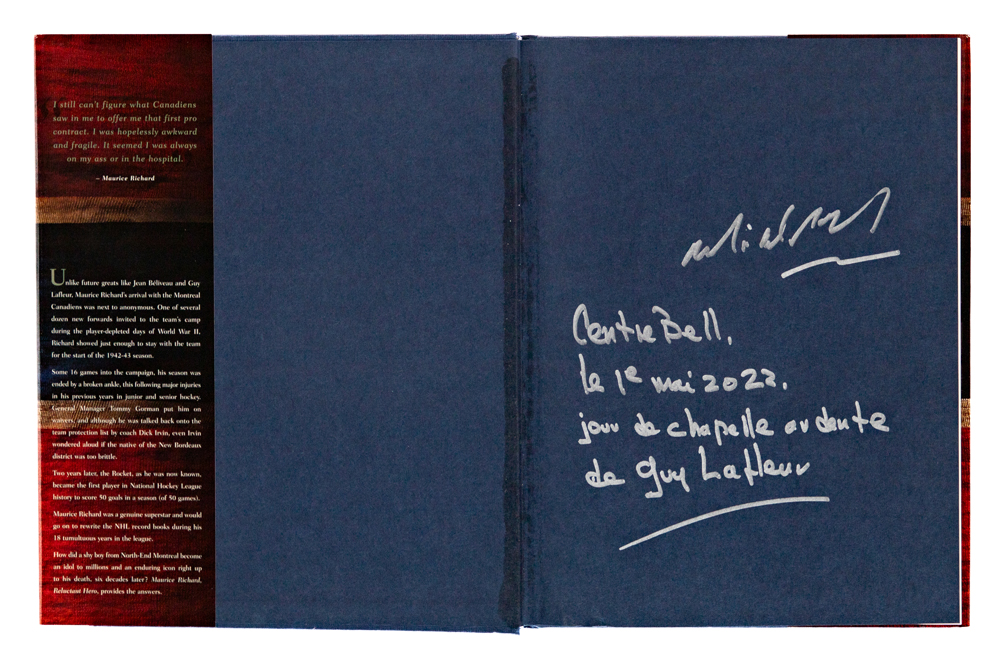 I still can't figure what Canadiens
saw in me to offer me that first pro
contract. I was hopelessly awkward
and fragile. It seemed I was always
on my ass or in the hospital.
– Maurice Richard
Unlike future greats like Jean Béliveau and Guy
Lafleur, Maurice Richard's arrival with the Montreal
Canadiens was next to anonymous. One of several
dozen new forwards invited to the team's camp
during the player-depleted days of World War II,
Richard showed just enough to stay with the team
for the start of the 1942-43 season.
Some 16 games into the campaign, his season was
ended by a broken ankle, this following major injuries
in his previous years in junior and senior hockey.
General Manager Tommy Gorman put him on
waivers, and although he was talked back onto the
team protection list by coach Dick Irvin, even Irvin
wondered aloud if the native of the New Bordeaux
district was too brittle.
Two years later, the Rocket, as he was now known,
became the first player in National Hockey League
history to score 50 goals in a season (of 50 games).
Maurice Richard was a genuine superstar and would
go on to rewrite the NHL record books during his
18 tumultuous years in the league.
How did a shy boy from North-End Montreal become
an idol to millions and an enduring icon right up
to his death, six decades later? Maurice Richard,
Reluctant Hero, provides the answers.
Centre Bell,
le 1e mai 2022.
jour de chapelle ardente
de Guy Lafleur